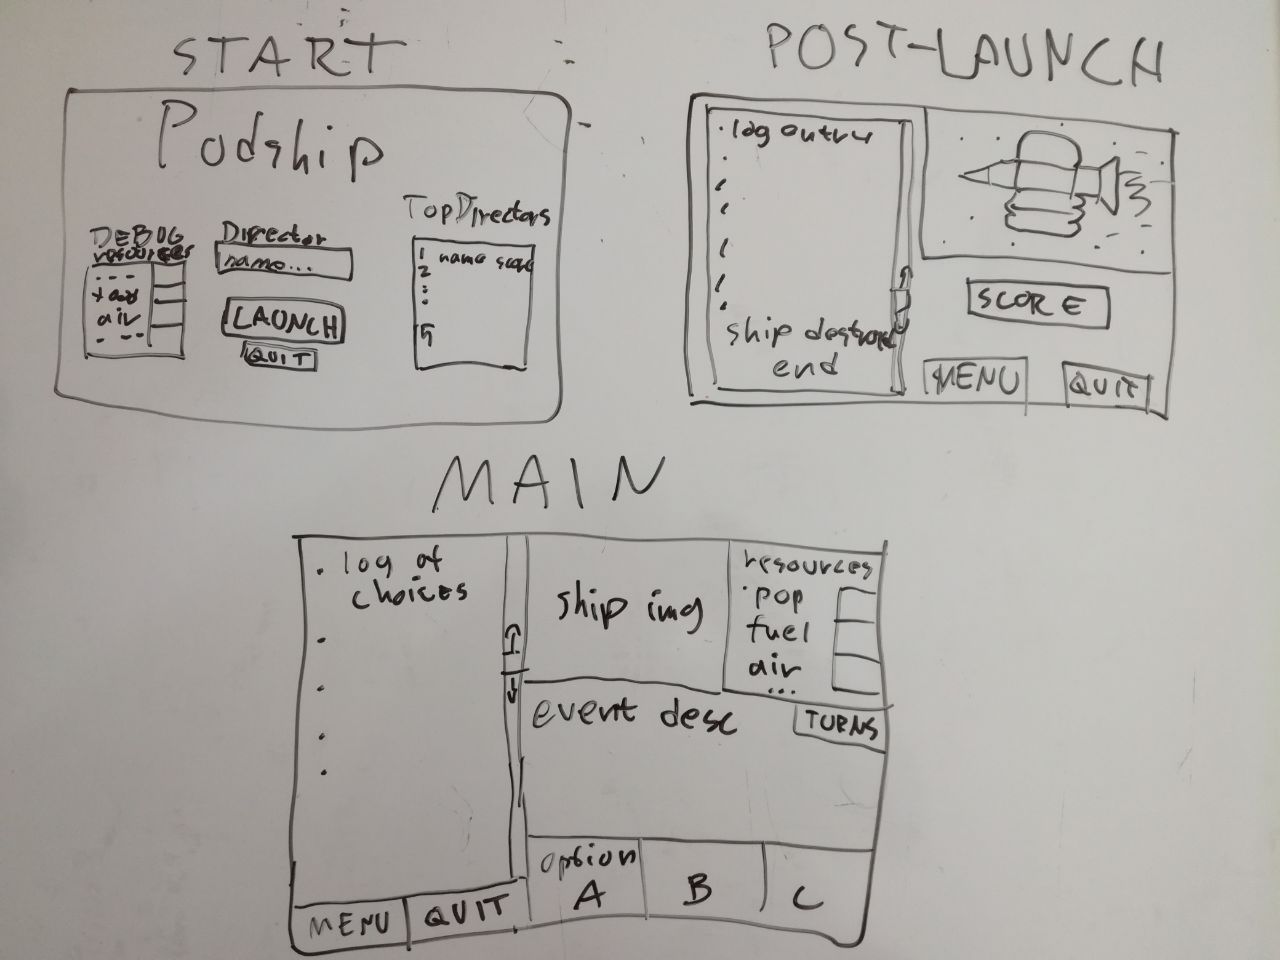 START
Podship
DEBUG
resources
food
air
Director
name...
LAUNCH
QUIT
Top Directors
1 name score
2
5
POST-LAUNCH
log entry
ship destroyed
end
SCORE
MENU
QUIT
MAIN
log of
choices
MENU
QUIT
ship img
resources
pop
fuel
air
...
event desc
TURNS
option
A
B
C